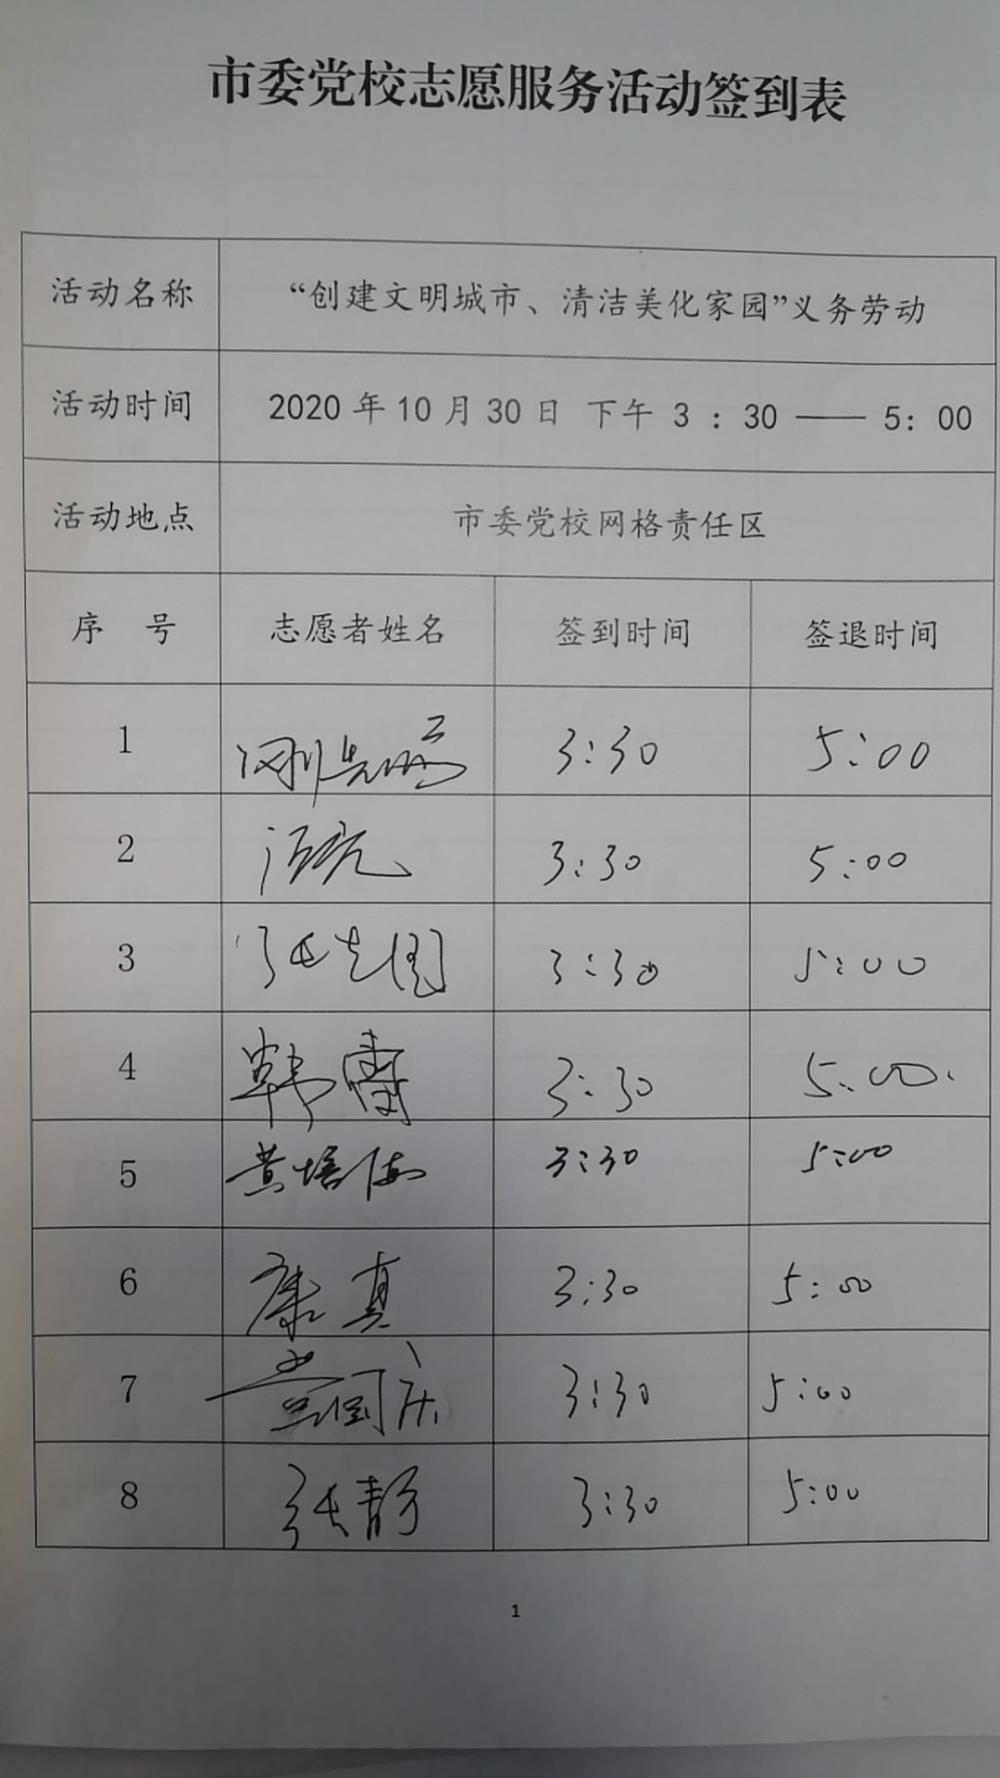 市委党校志愿服务活动签到表
活动名称 “创建文明城市、清洁美化家园”义务劳动
活动时间 2020 年 10 月 30 日 下午 3 : 30 —— 5: 00
活动地点 市委党校网格责任区
序 号 志愿者姓名 签到时间 签退时间
1 3:30 5:00
2 3:30 5:00
3 3:30 5:00
4 3:30 5:00
5 黄培 3:30 5:00
6 康真 3:30 5:00
7 国庆 3:30 5:00
8 张静 3:30 5:00
1